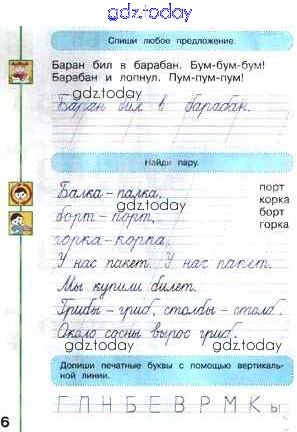 gdz.today
Спиши любое предложение.
Баран бил в барабан. Бум-бум-бум!
Барабан и лопнул. Пум-пум-пум!
gdz.today
Баран бил в барабан.
gdz.today
Найди пару.
Балка – палка,
порт
gdz.today
корка
борт – порт,
борт
горка – корка.
горка
У нас пакет. У нас пакет.
Мы купили билет.
Грибы – гриб, столбы – столб.
Около сосны вырос гриб.
gdz.today
Допиши печатные буквы с помощью вертикаль-
ной линии.
6
Г П Н Б Е В Р М К ы